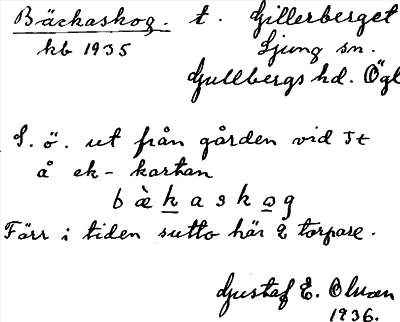 Bäckaskog. t. Gillerberget
kb 1935 Ljung sn.
Gullbergs hd. Ögl
S. ö. ut från gården vid St
å ek-kartan
b à k a s k o g
Färr i tiden sutto här 2 torpare.
Gustaf E. Olsson
1936.